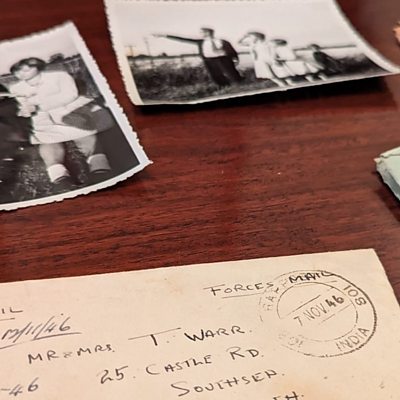 FORCES MAIL
IL
12/11/46
7 NOV. 46
108
INDIA
MR & MRS. T. WARR.
-46
25. CASTLE RD.
SOUTHSEA.